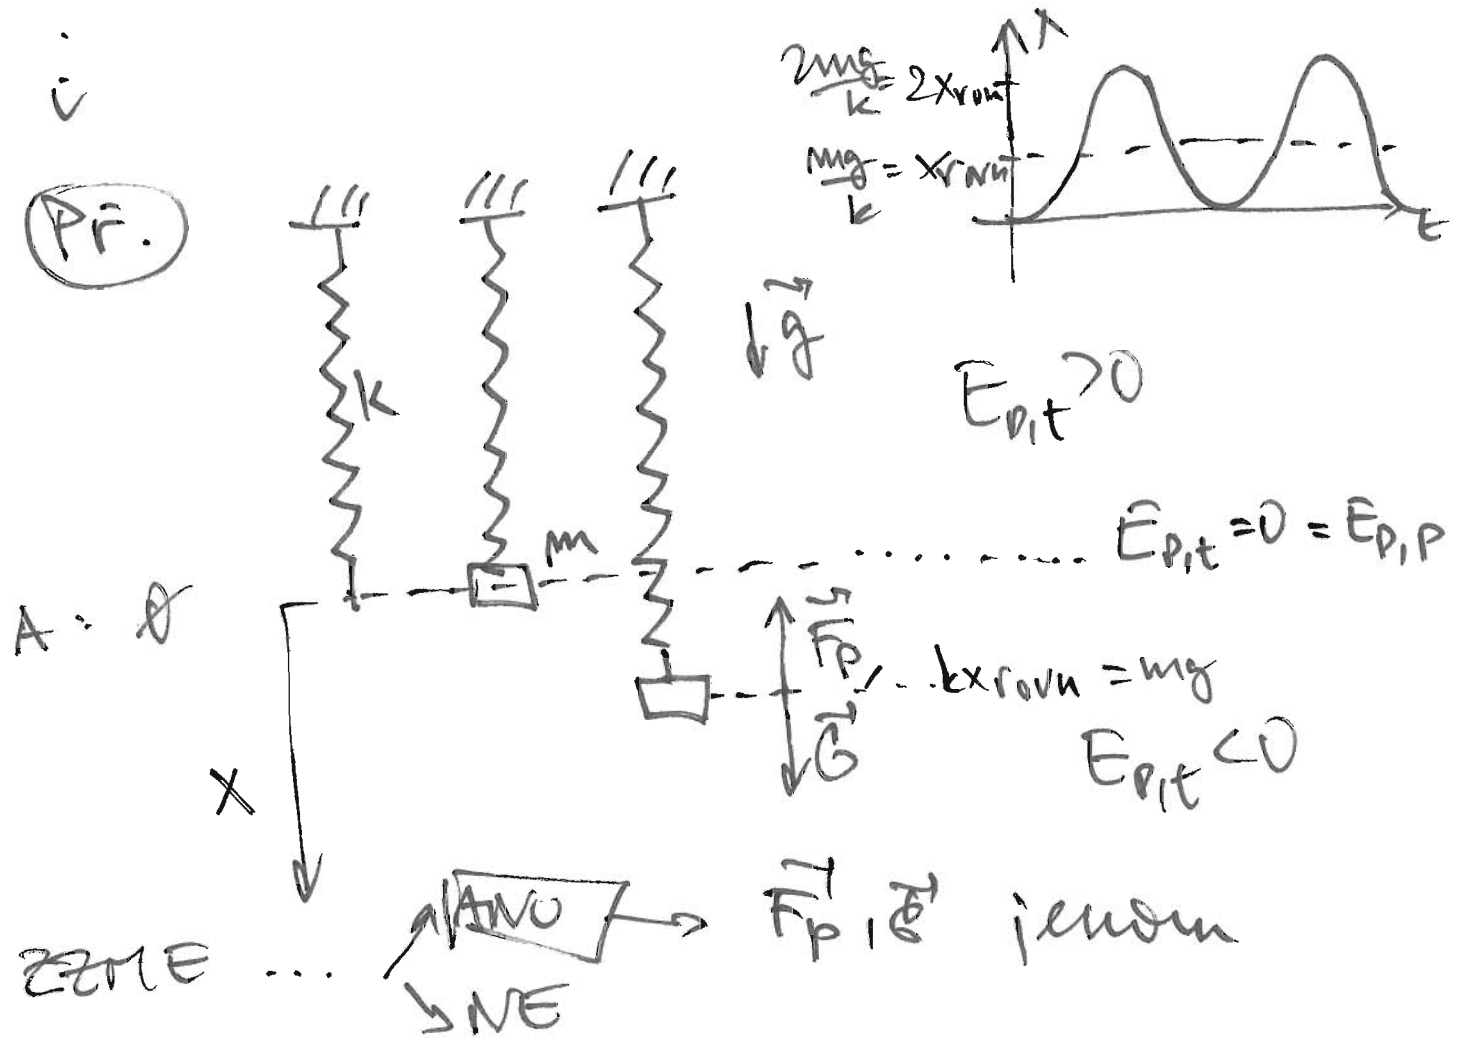 Př.
x
2mg/k = 2x_rovn
mg/k = x_rovn
t
k
g⃗
E_p,t > 0
m
E_p,t = 0 = E_p,p
A: ∅
F⃗_p
kx_rovn = mg
G⃗
E_p,t < 0
x
ZZME ... a) ANO → F⃗_p, G⃗ jenom
NE